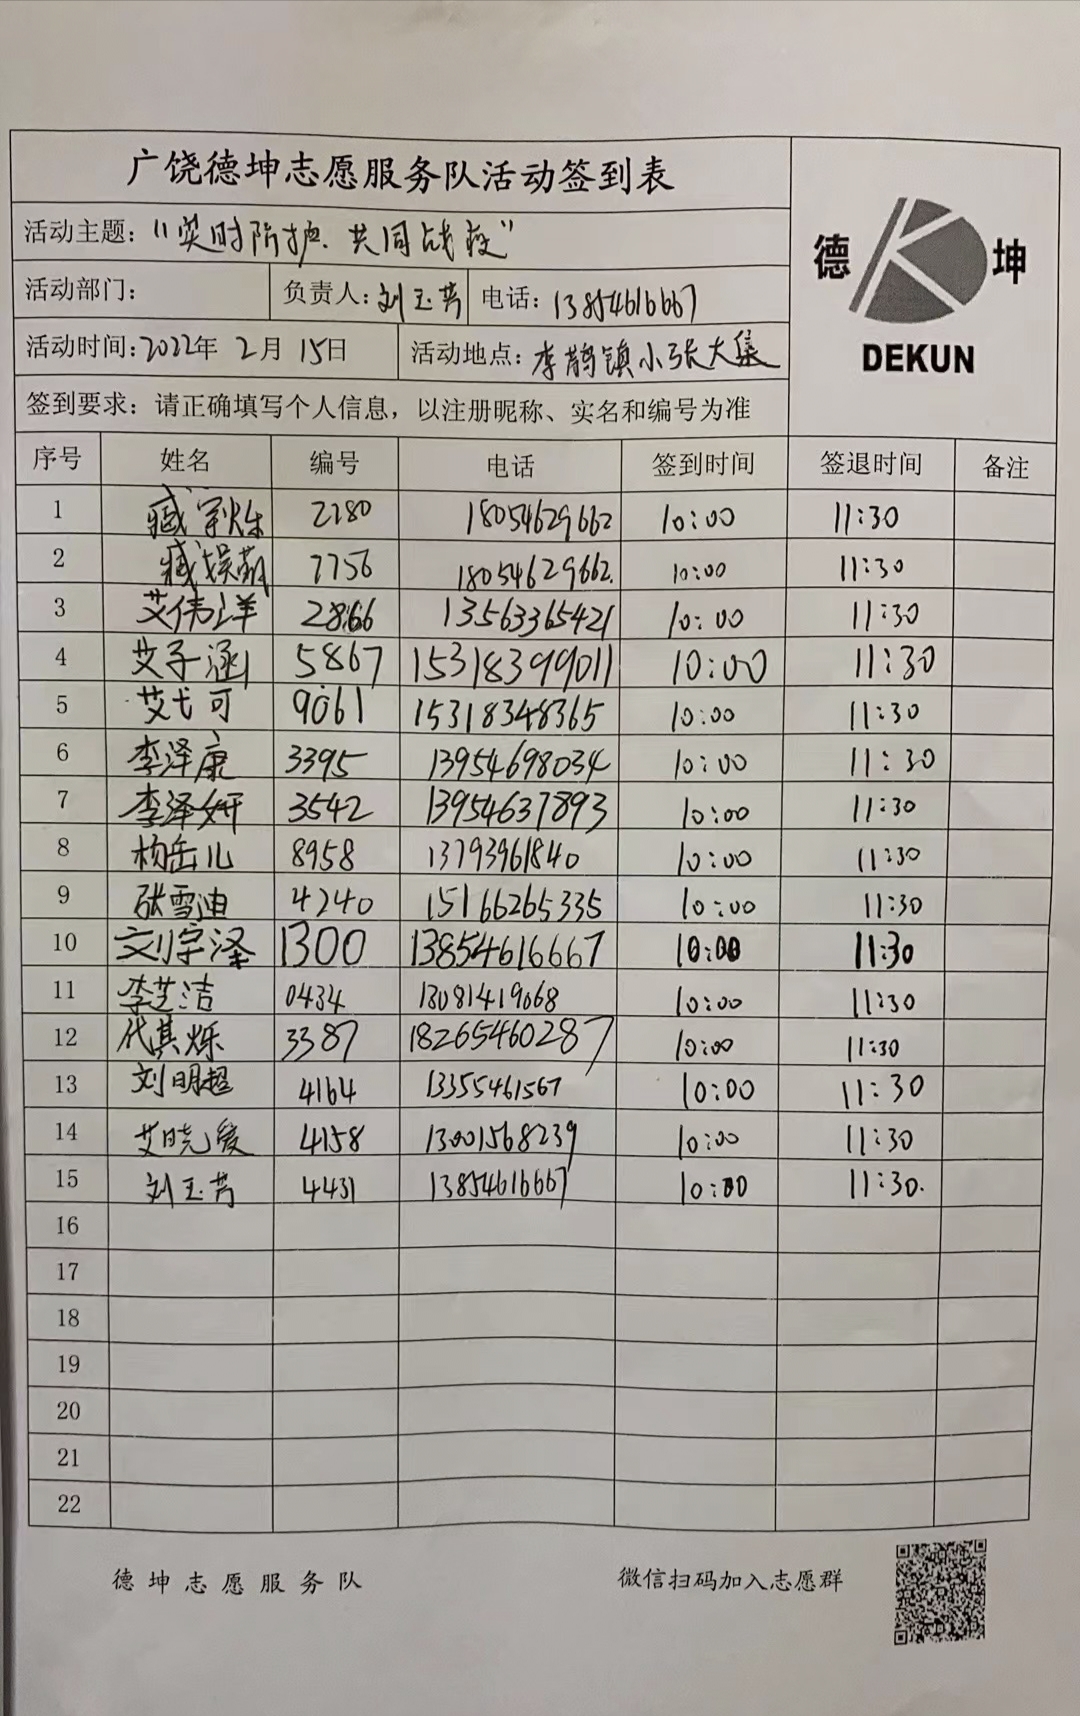 广饶德坤志愿服务队活动签到表
活动主题：“实时防护 共同战疫”
德 坤
DEKUN
活动部门： 负责人：刘玉芳 电话：13854616667
活动时间：2022年 2月 15日 活动地点：李鹊镇小张大集
签到要求：请正确填写个人信息，以注册昵称、实名和编号为准
序号 姓名 编号 电话 签到时间 签退时间 备注
1 臧宇烁 2280 18054629662 10:00 11:30
2 臧 7756 18054629662. 10:00 11:30
3 艾伟洋 2866 13563365421 10:00 11:30
4 艾子涵 5867 15318399011 10:00 11:30
5 艾弋可 9061 15318348365 10:00 11:30
6 李泽康 3395 13954698034 10:00 11:30
7 李泽妍 3542 13954637893 10:00 11:30
8 杨岳儿 8958 13793961840 10:00 11:30
9 张雪迪 4240 15166265335 10:00 11:30
10 刘宇泽 1300 13854616667 10:00 11:30
11 李芝洁 0434 13081419068 10:00 11:30
12 代其烁 3387 18265460287 10:00 11:30
13 刘明超 4164 13355461567 10:00 11:30
14 艾晓爱 4158 13001568239 10:00 11:30
15 刘玉芳 4431 13854616667 10:00 11:30.
16
17
18
19
20
21
22
德坤志愿服务队 微信扫码加入志愿群